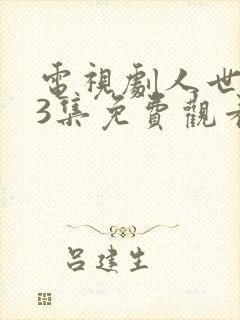 電視劇人世
3集免費觀看
呂建生